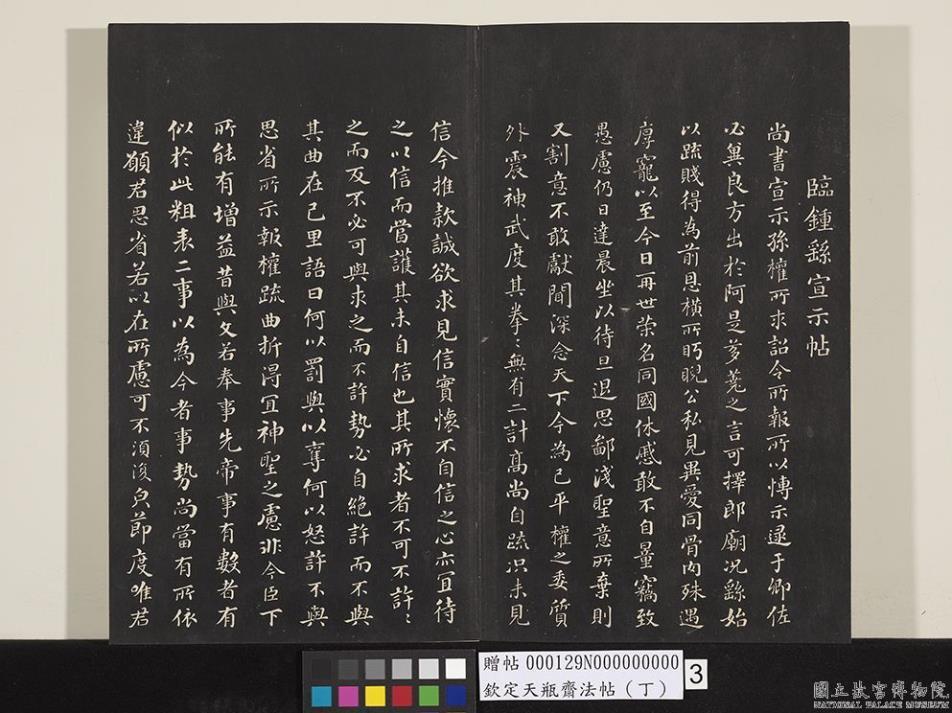 臨鍾繇宣示帖
尚書宣示孫權所求詔令所報所以博示逮于卿佐
必異良方出於阿是芻蕘之言可擇郎廟況繇始
以疏賤得為前恩橫所眄睨公私見異愛同骨肉殊遇
厚寵以至今日再世榮名同國休慼敢不自量竊致
愚慮仍日達晨坐以待旦退思鄙淺聖意所棄則
又割意不敢獻聞深念天下今為已平權之委質
外震神武度其拳〻無有二計高尚自疏況未見
信今推款誠欲求見信實懷不自信之心亦宜待
之以信而當護其未自信也其所求者不可不許〻
之而反不必可與求之而不許勢必自絕許而不與
其曲在己里語曰何以罰與以奪何以怒許不與
思省所示報權疏曲折得宜神聖之慮非今臣下
所能有增益昔與文若奉事先帝事有數者有
似於此粗表二事以為今者事勢尚當有所依
違願君思省若以在所慮可不須復白節度唯君
贈帖 000129N000000000
欽定天瓶齋法帖（丁）
3
國立故宮博物院
NATIONAL PALACE MUSEUM